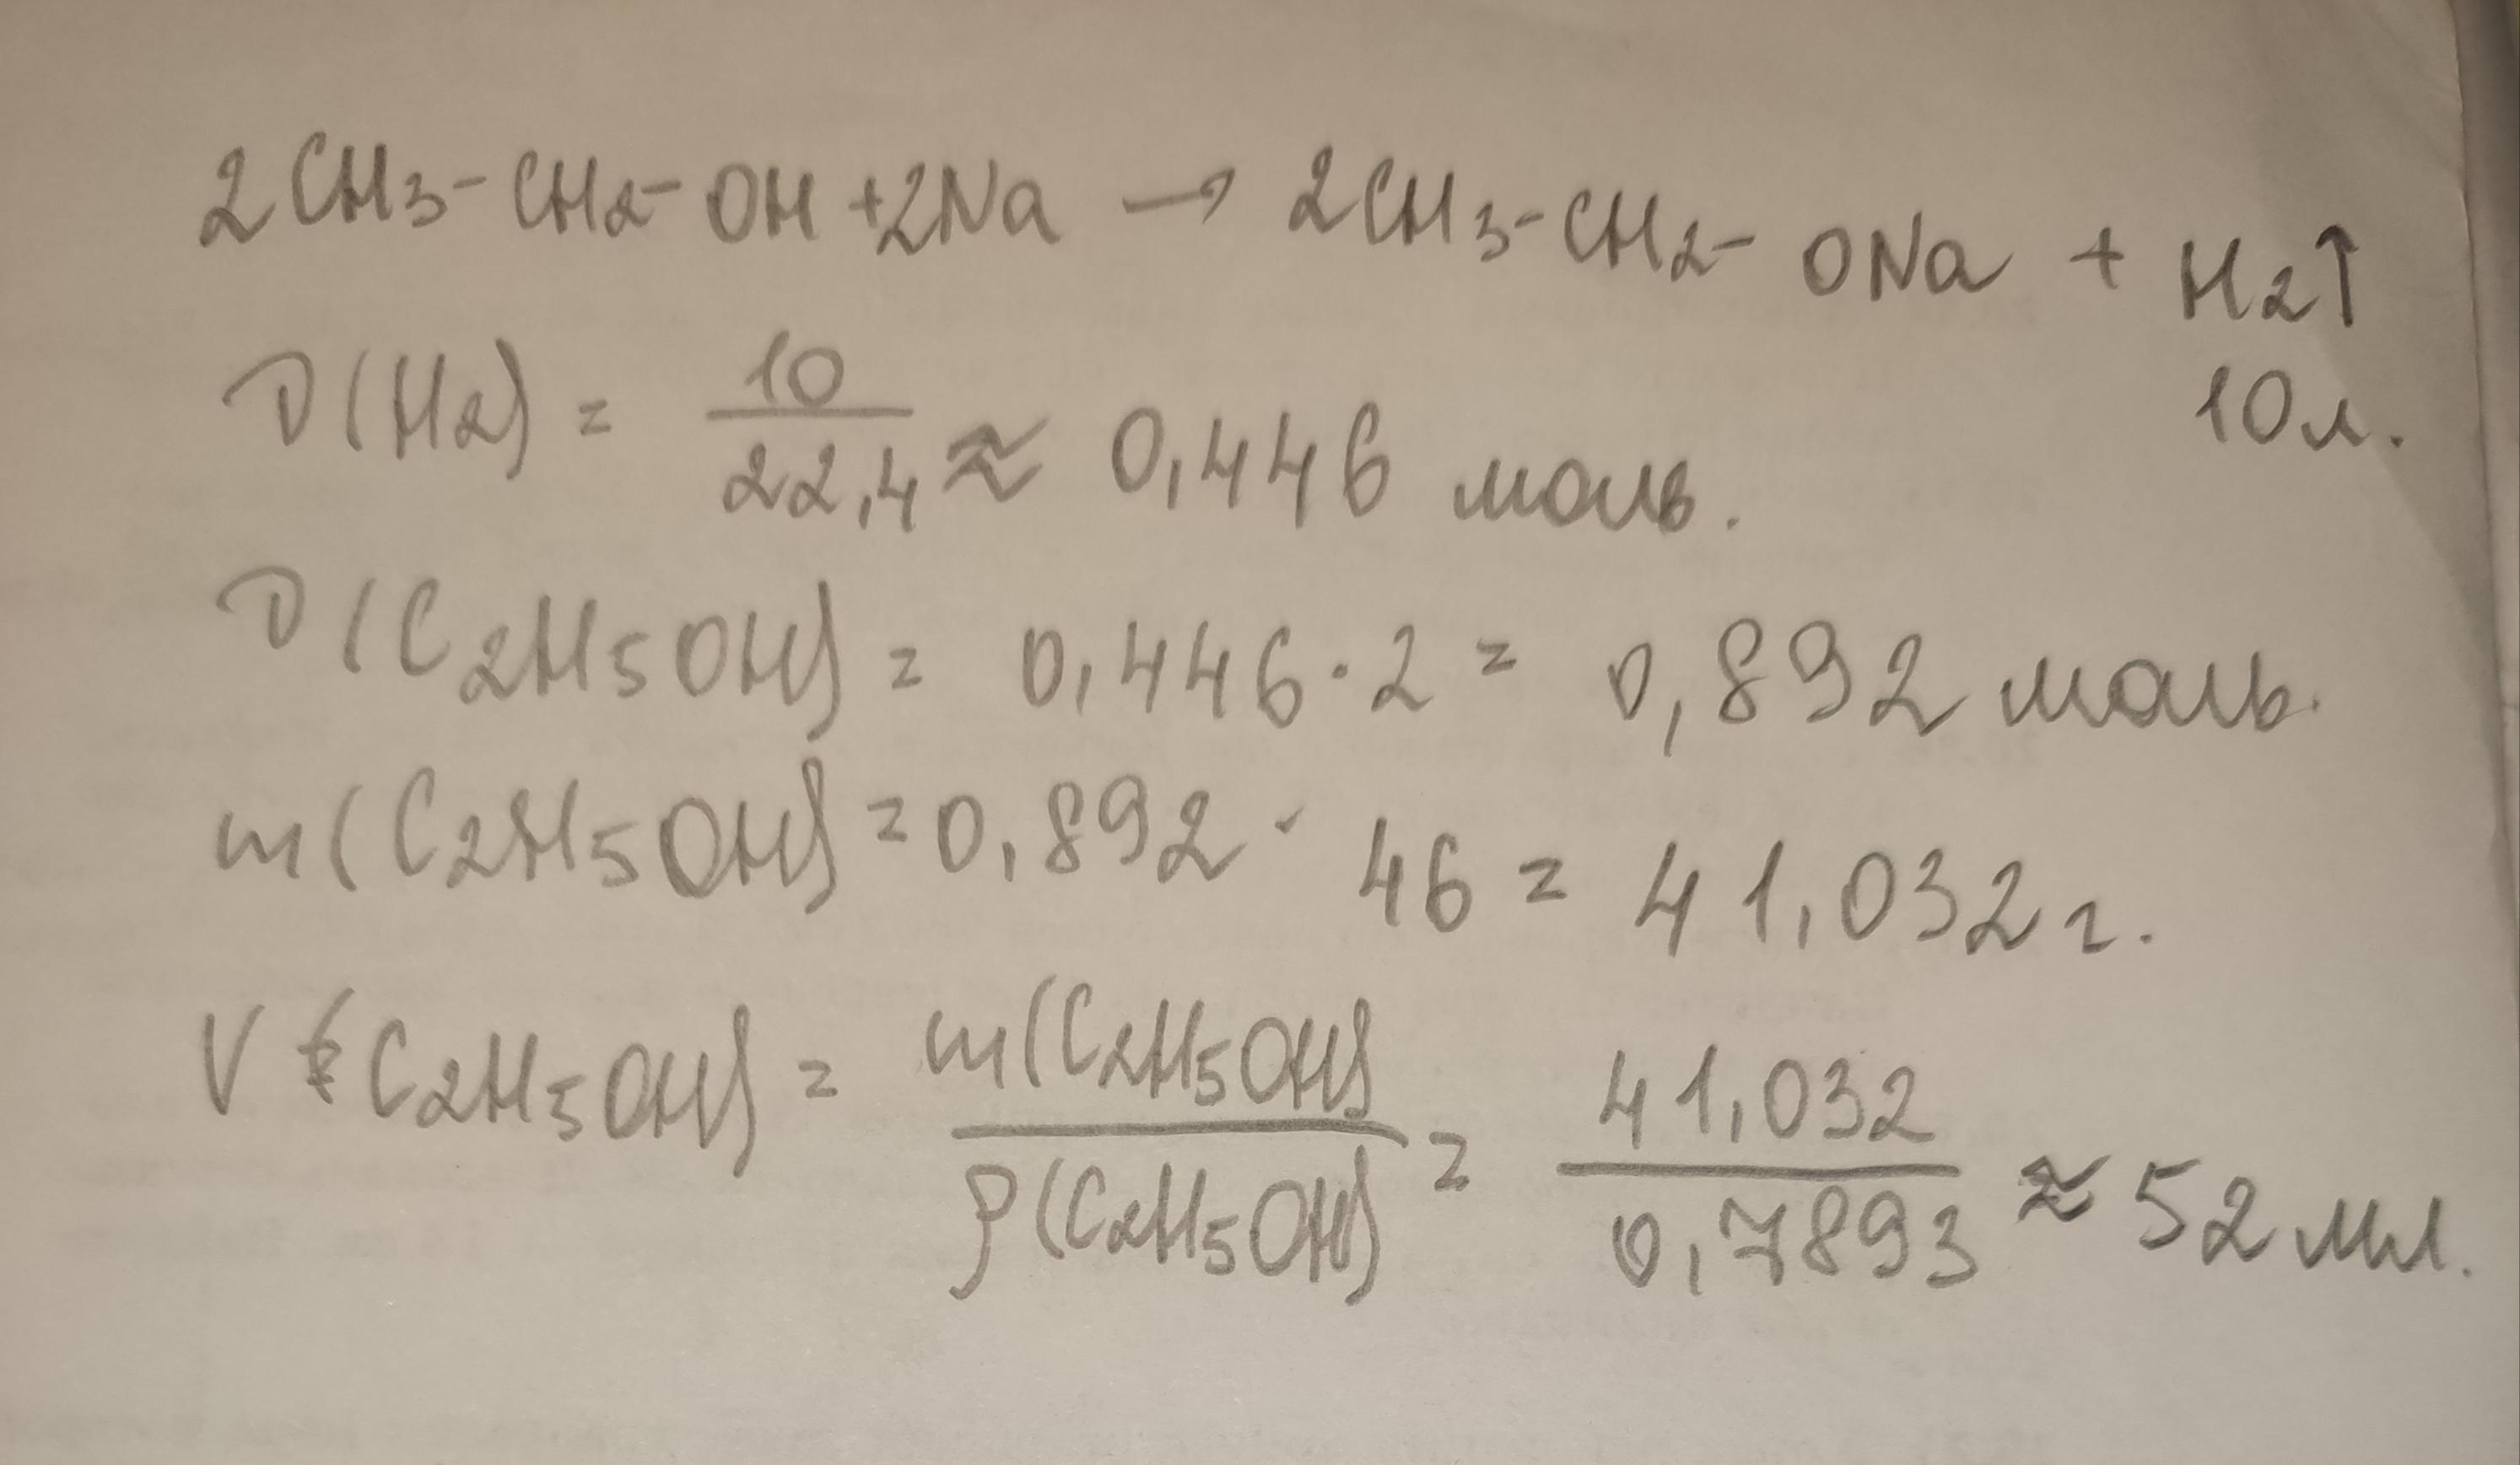 2CH3-CH2-OH+2Na → 2CH3-CH2-ONa + H2↑
10л.
ν(H2) = 10/22,4 ≈ 0,446 моль.
ν(C2H5OH) = 0,446·2 = 0,892 моль.
m(C2H5OH) = 0,892·46 = 41,032 г.
V(C2H5OH) = m(C2H5OH)/ρ(C2H5OH) = 41,032/0,7893 ≈ 52 мл.